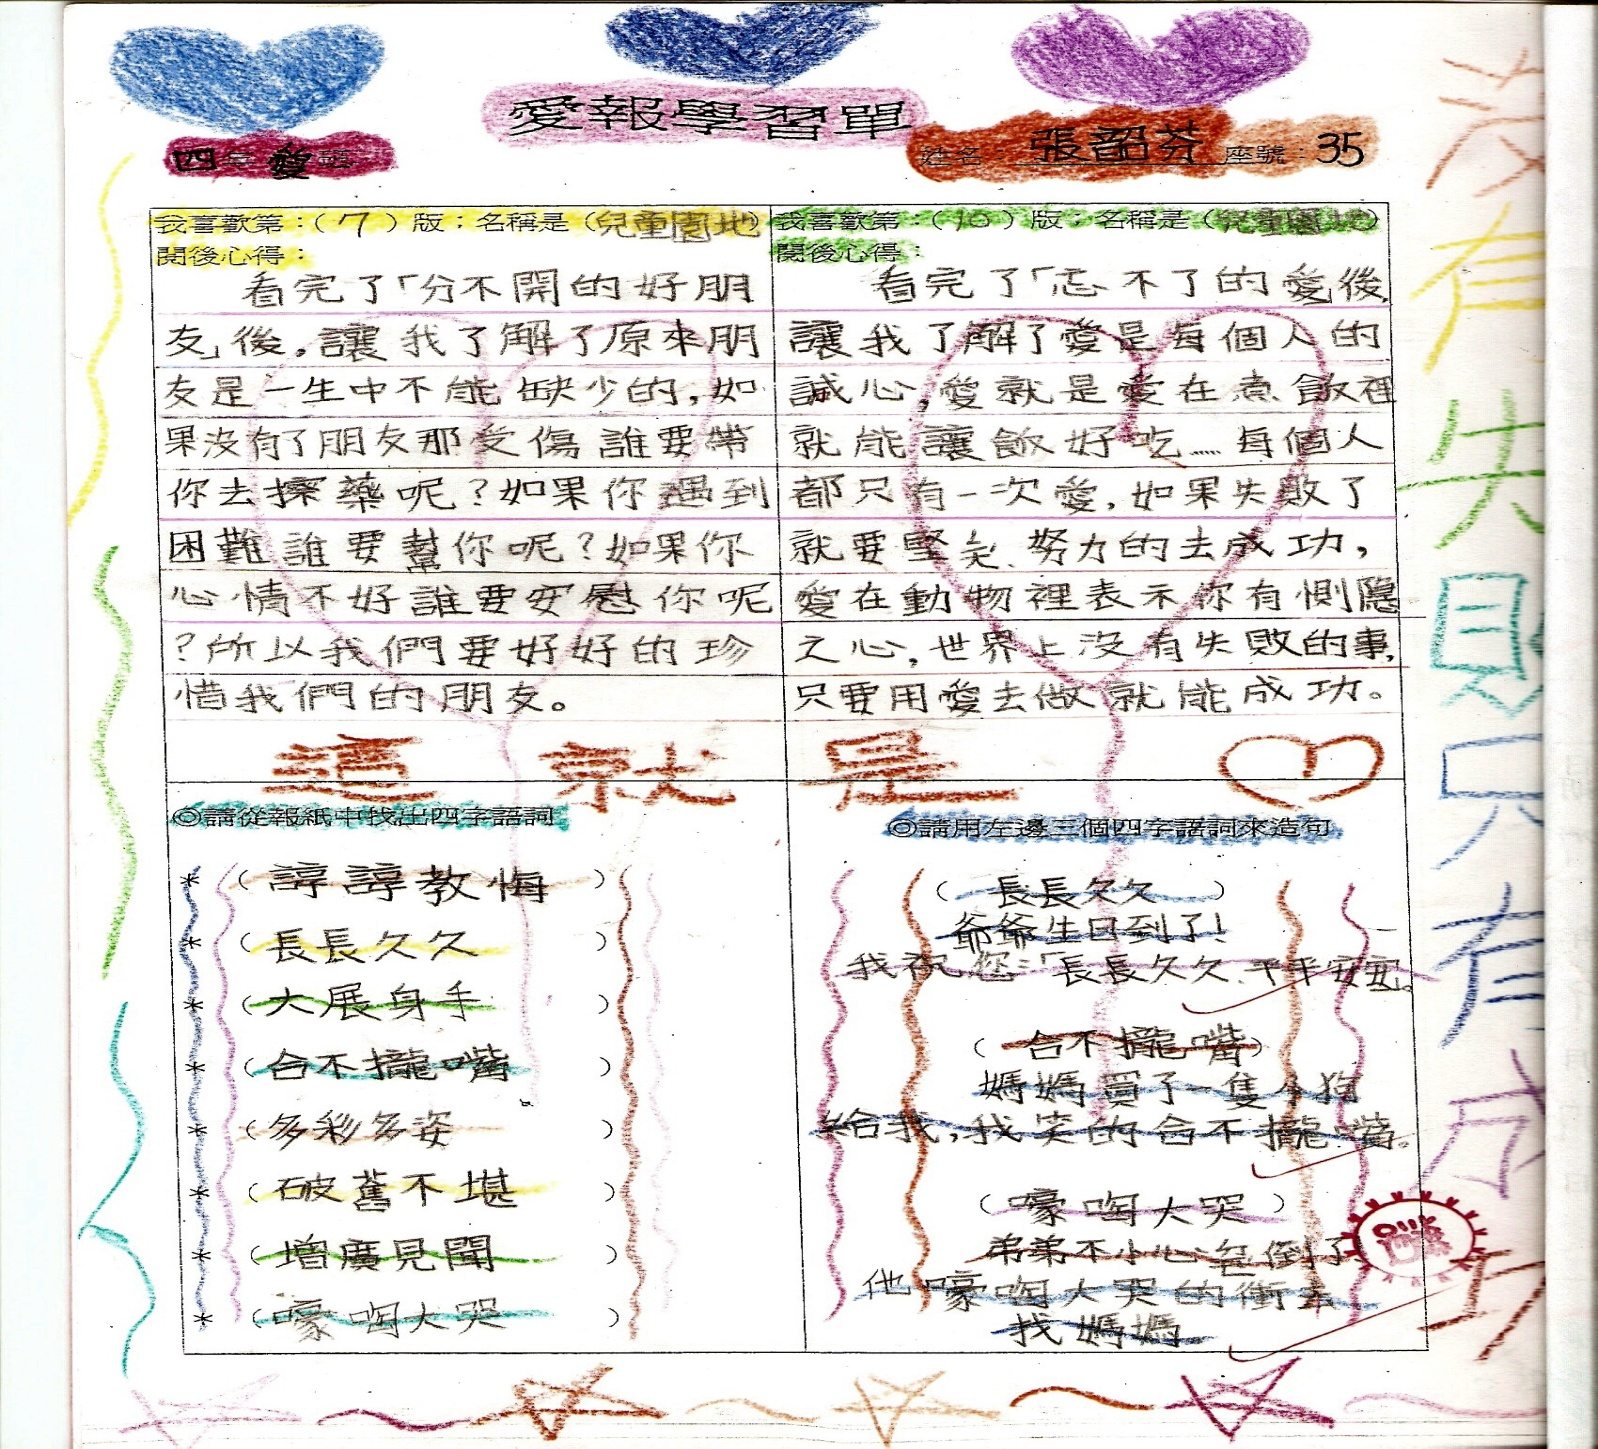 愛報學習單
四年愛班
姓名：張韶芬 座號：35
我喜歡第：(7)版；名稱是(兒童園地)
閱後心得：
看完了「分不開的好朋
友」後，讓我了解了原來朋
友是一生中不能缺少的，如
果沒有了朋友那受傷誰要帶
你去擦藥呢？如果你遇到
困難誰要幫你呢？如果你
心情不好誰要安慰你呢
？所以我們要好好的珍
惜我們的朋友。
我喜歡第：(10)版；名稱是(兒童園地)
閱後心得：
看完了「忘不了的愛」後，
讓我了解了愛是每個人的
誠心，愛就是愛在煮飯裡
就能讓飯好吃……每個人
都只有一次愛，如果失敗了
就要堅 努力的去成功，
愛在動物裡表示你有惻隱
之心，世界上沒有失敗的事，
只要用愛去做就能成功。
這就是
◎請從報紙中找出四字語詞
*（諄諄教悔）
*（長長久久）
*（大展身手）
*（合不攏嘴）
*（多彩多姿）
*（破舊不堪）
*（增廣見聞）
*（嚎啕大哭）
◎請用左邊三個四字語詞來造句
（長長久久）
爺爺生日到了！
我祝您：「長長久久、平平安安。
（合不攏嘴）
媽媽買了一隻小狗
給我，我笑的合不攏嘴。
（嚎啕大哭）
弟弟不小心 倒了
他嚎啕大哭的衝去
找媽媽
沒有失敗只有成功